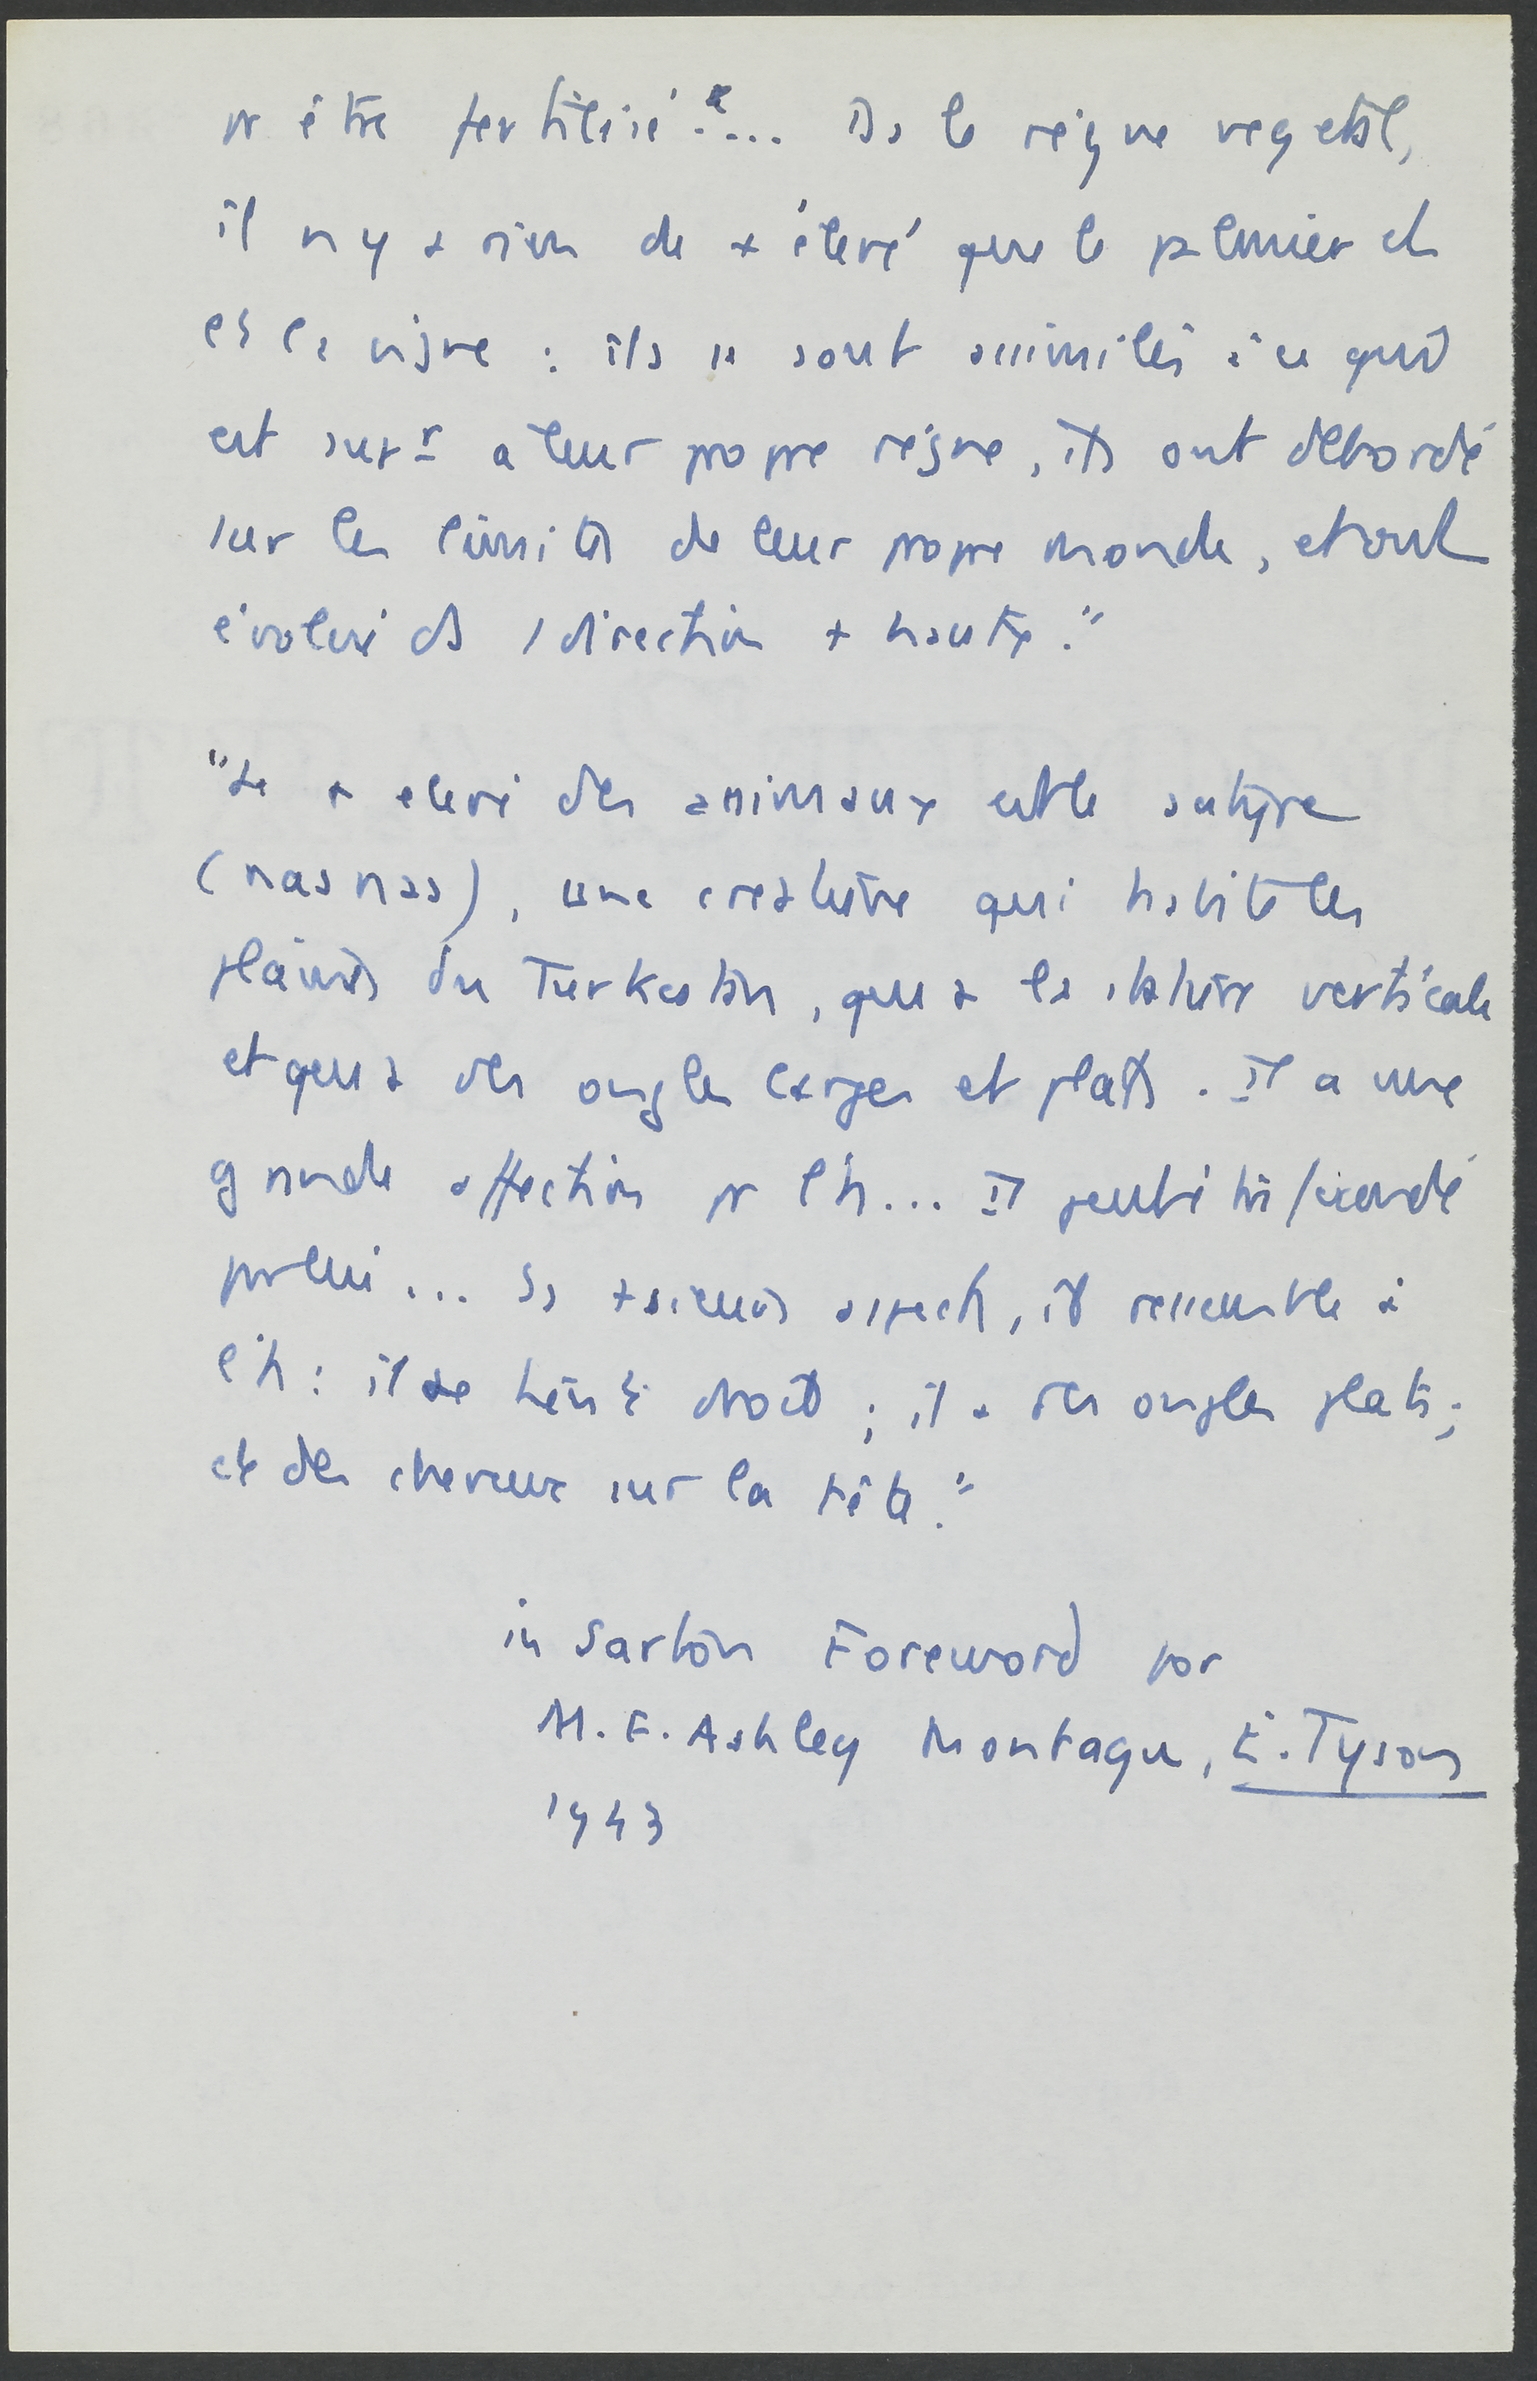 pr être fertilisé"... Ds le règne vegetal,
il n y a rien de + élevé que le palmier et
et la vigne : ils se sont assimilés à ce qui
est supr a leur propre règne, ils ont débordé
sur les limites de leur propre monde, et ont
évolué ds 1 direction + haute."
"Le + elevé des animaux est le satyre
(nasnas), une creature qui habite les
plaines du Turkestan, qui a la stature verticale
et qui a des ongles larges et plats. Il a une
grande affection pr l'h... Il peut être fécondé
par lui... Ss +sieurs aspects, il ressemble à
l'h : il se tient droit ; il a des ongles plats ;
et des cheveux sur la tête."
in Sarton Foreword par
M. F. Ashley Montagu, E. Tyson
1943